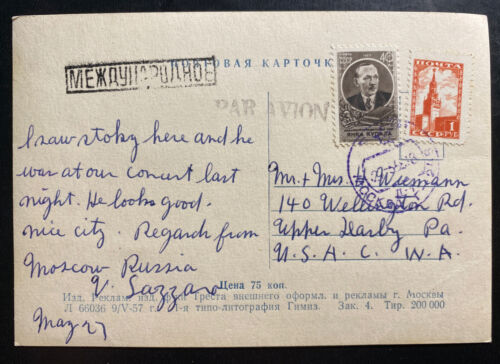 ОВАЯ КАРТОЧК
МЕЖДУНАРОДНОЕ
PAR AVION
40
ЯНКА КУПАЛА
ПОЧТА
СССР
1
РУБ
МОСКВА
I saw Stoky here and he
was at our concert last
night. He looks good.
nice city. Regards from
Moscow Russia
V. Lazzaro
May 27
Mr. + Mrs. Wiemann
140 Wellington Rd.
Upper Darby Pa.
U.S.A. C. W.A.
Цена 75 коп.
Изд. Реклам. изд. Треста внешнего оформл. и рекламы г. Москвы
Л 66036 9/V-57 г. 1-я типо-литография Гимиз. Зак. 4. Тир. 200 000